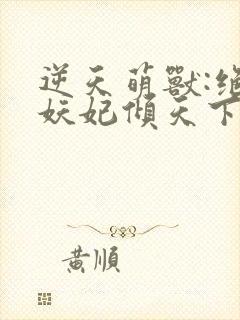 逆天萌獸:絕
妖妃傾天下
黃順